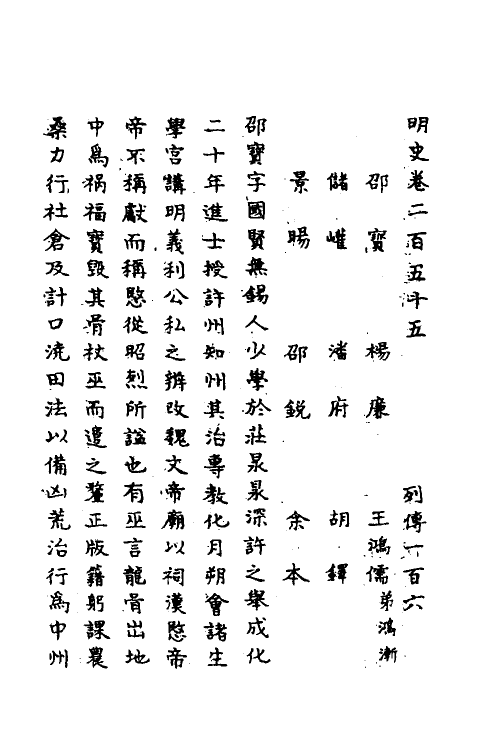 明史卷二百五十五 列傳一百六
邵寶 楊廉 王鴻儒弟鴻漸
儲巏 潘府 胡鐸
景暘 邵銳 余本
邵寶字國賢無錫人少學於莊㫤㫤深許之舉成化
二十年進士授許州知州其治專教化月朔會諸生
學宮講明義利公私之辨改魏文帝廟以祠漢愍帝
帝不稱獻而稱愍從昭烈所諡也有巫言龍骨出地
中爲禍福寶毀其骨杖巫而遣之釐正版籍躬課農
桑力行社倉及計口流田法以備凶荒治行爲中州